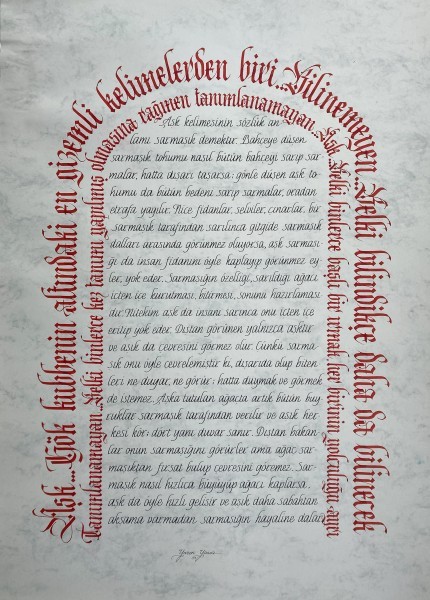 Aşk... Gök kubbenin altındaki en gizemli kelimelerden biri... Bilinemeyen... Belki bilindikçe daha da bilinecek
Tanımlanamayan... Belki binlerce kez tanımı yapılmış olmasına rağmen tanımlanamayan. Aşk. Belki binlerce başlı bir ırmak her birinin yolculuğu ayrı
Aşk kelimesinin sözlük an
lamı sarmaşık demektir. Bahçeye düşen
sarmaşık tohumu nasıl bütün bahçeyi sarıp sar-
malar, hatta dışarı taşarsa; gönle düşen aşk to-
humu da bütün bedeni sarıp sarmalar, oradan
etrafa yayılır. Nice fidanlar, selviler, çınarlar, bir
sarmaşık tarafından sarılınca gitgide sarmaşık
dalları arasında görünmez oluyorsa, aşk sarmaşı-
ğı da insan fidanını öyle kaplayıp görünmez ey-
ler, yok eder. Sarmaşığın özelliği, sarıldığı ağacı
içten içe kurutması, bitirmesi, sonunu hazırlaması
dır. Nitekim aşk da insanı sarınca onu içten içe
eritip yok eder. Dıştan görünen yalnızca aşktır
ve aşık da çevresini görmez olur. Çünkü sarma-
şık onu öyle çevrelemiştir ki, dışarıda olup biten-
leri ne duyar, ne görür; hatta duymak ve görmek
de istemez. Aşka tutulan ağaçta artık bütün buy
ruklar sarmaşık tarafından verilir ve aşık her-
kesi kör; dört yanı duvar sanır. Dıştan bakan-
lar onun sarmaşığını görürler ama ağaç sar-
maşıktan fırsat bulup çevresini göremez. Sar-
maşık nasıl hızlıca büyüyüp ağacı kaplarsa,
aşk da öyle hızlı gelişir ve aşık daha sabahtan
akşama varmadan sarmaşığın hayaline dalar